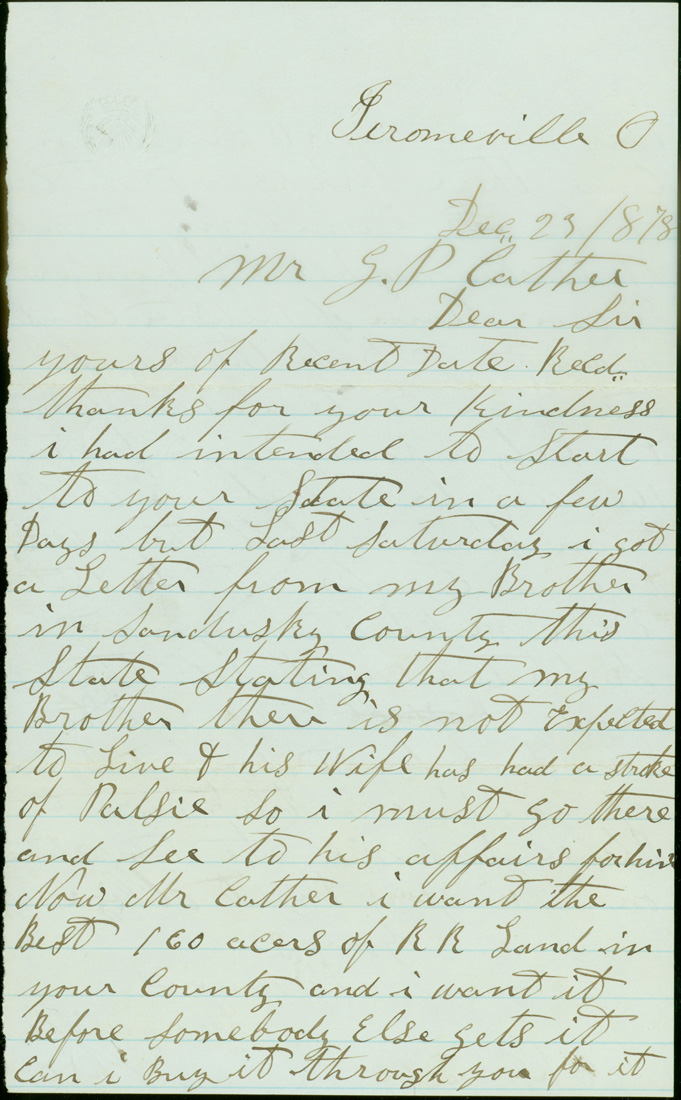 Jeromeville O
Dec 23 / 878
Mr G. P Cather
Dear Sir
yours of Recent Date Recd
thanks for your Kindness
i had intended to Start
to your State in a few
Days but Last Saturday i got
a Letter from my Brother
in Sandusky County this
State Stating that my
Brother there is not Expected
to Live & his Wife has had a stroke
of Palsie so i must go there
and See to his affairs for him
Now Mr Cather i want the
Best 160 acers of R R Land in
your County and i want it
Before Somebody Else gets it
Can i Buy it through you for it